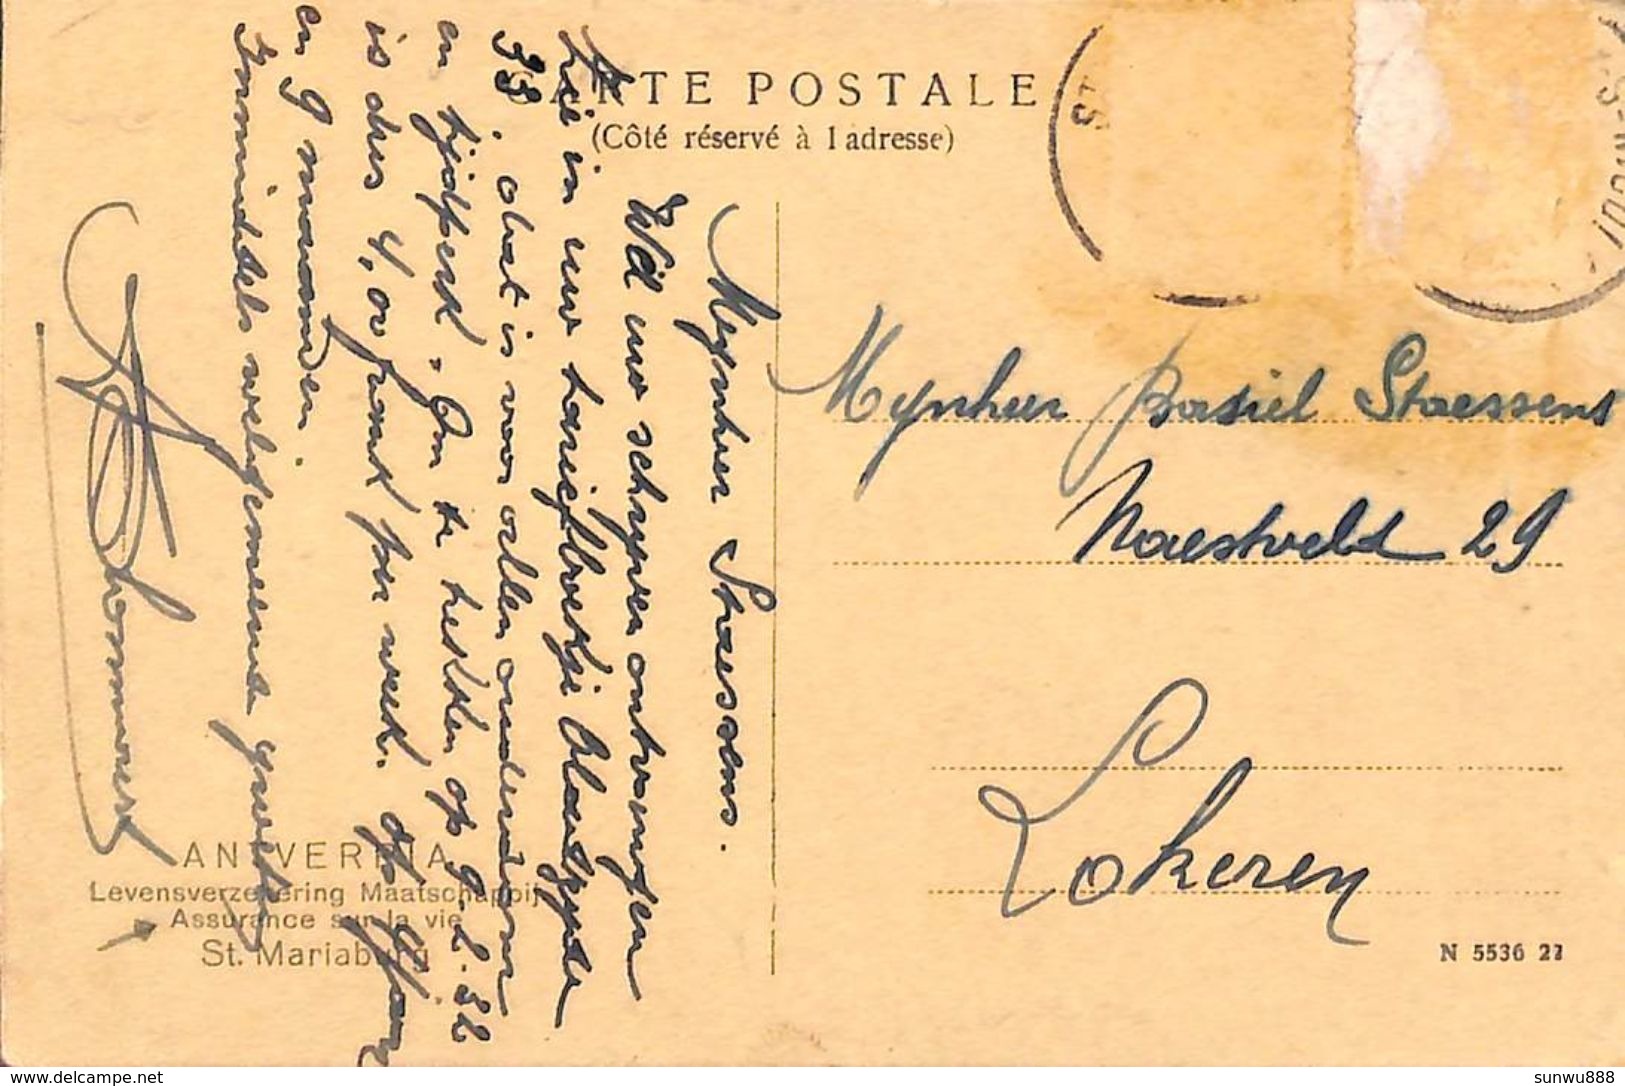 CARTE POSTALE
(Côté réservé à l adresse)
Mynheer Staessens.
Wel uw schryven ontvangen
zie in uw tariefboekje bladzyde
33, dat is voor allen ouderdom
en tijdperk. Om te tellen op 9-2-32
is dus 4,00 frank per week.
en 9 maanden.
Inmiddels welgemeende groeten
Mynheer Basiel Staessens
Naestveld 29
Lokeren
ANTVERPIA
Levensverzekering Maatschappij
Assurance sur la vie
St. Mariaburg
N 5536 22
www.delcampe.net
sunwu888